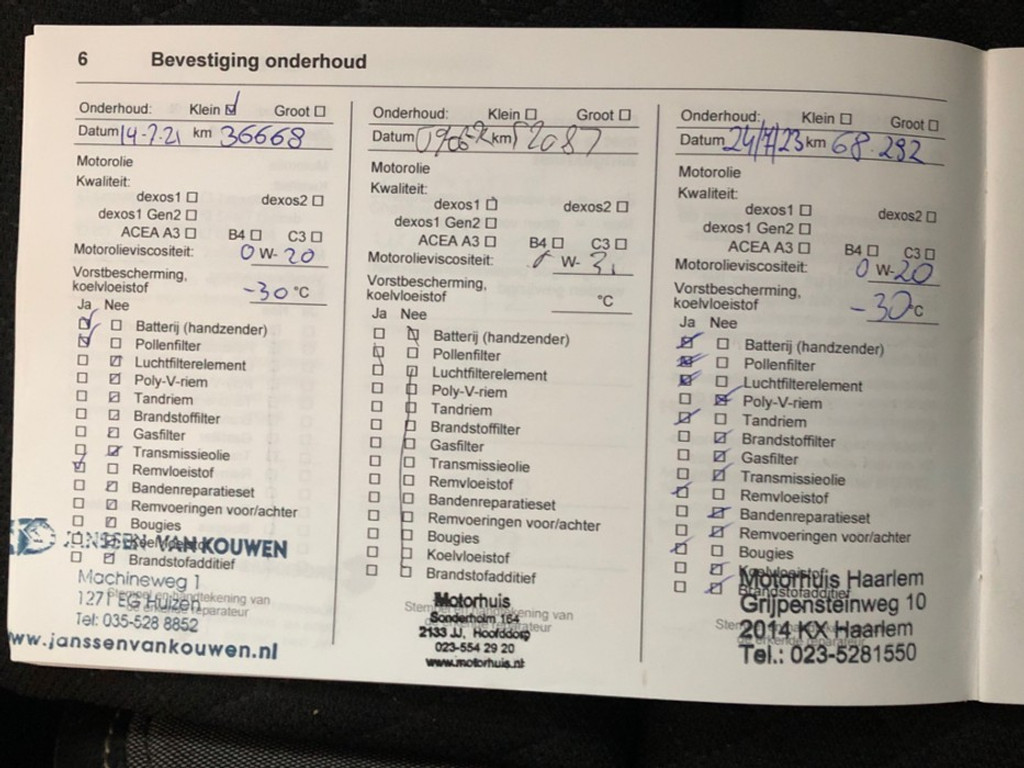 6 Bevestiging onderhoud
Onderhoud: Klein Groot
Datum 14-7-21 km 36668
Motorolie
Kwaliteit:
dexos1 dexos2
dexos1 Gen2
ACEA A3 B4 C3
Motorolieviscositeit: 0 W-20
Vorstbescherming,
koelvloeistof -30 °C
Ja Nee
Batterij (handzender)
Pollenfilter
Luchtfilterelement
Poly-V-riem
Tandriem
Brandstoffilter
Gasfilter
Transmissieolie
Remvloeistof
Bandenreparatieset
Remvoeringen voor/achter
Bougies
Koelvloeistof
Brandstofadditief
JANSSEN VAN KOUWEN
Machineweg 1
Stempel en handtekening van
1271 EG Huizen
de erkende reparateur
Tel: 035-528 8852
www.janssenvankouwen.nl
Onderhoud: Klein Groot
Datum km 52087
Motorolie
Kwaliteit:
dexos1 dexos2
dexos1 Gen2
ACEA A3 B4 C3
Motorolieviscositeit: W-
Vorstbescherming,
koelvloeistof °C
Ja Nee
Batterij (handzender)
Pollenfilter
Luchtfilterelement
Poly-V-riem
Tandriem
Brandstoffilter
Gasfilter
Transmissieolie
Remvloeistof
Bandenreparatieset
Remvoeringen voor/achter
Bougies
Koelvloeistof
Brandstofadditief
Motorhuis
Stempel en handtekening van
Sonderholm 164
de erkende reparateur
2133 JJ, Hoofddorp
023-554 29 20
www.motorhuis.nl
Onderhoud: Klein Groot
Datum 24/7/23 km 68.282
Motorolie
Kwaliteit:
dexos1 dexos2
dexos1 Gen2
ACEA A3 B4 C3
Motorolieviscositeit: 0 W-20
Vorstbescherming,
koelvloeistof -30 °C
Ja Nee
Batterij (handzender)
Pollenfilter
Luchtfilterelement
Poly-V-riem
Tandriem
Brandstoffilter
Gasfilter
Transmissieolie
Remvloeistof
Bandenreparatieset
Remvoeringen voor/achter
Bougies
Koelvloeistof
Brandstofadditief
Motorhuis Haarlem
Grijpensteinweg 10
Stempel en handtekening van
2014 KX Haarlem
de erkende reparateur
Tel.: 023-5281550